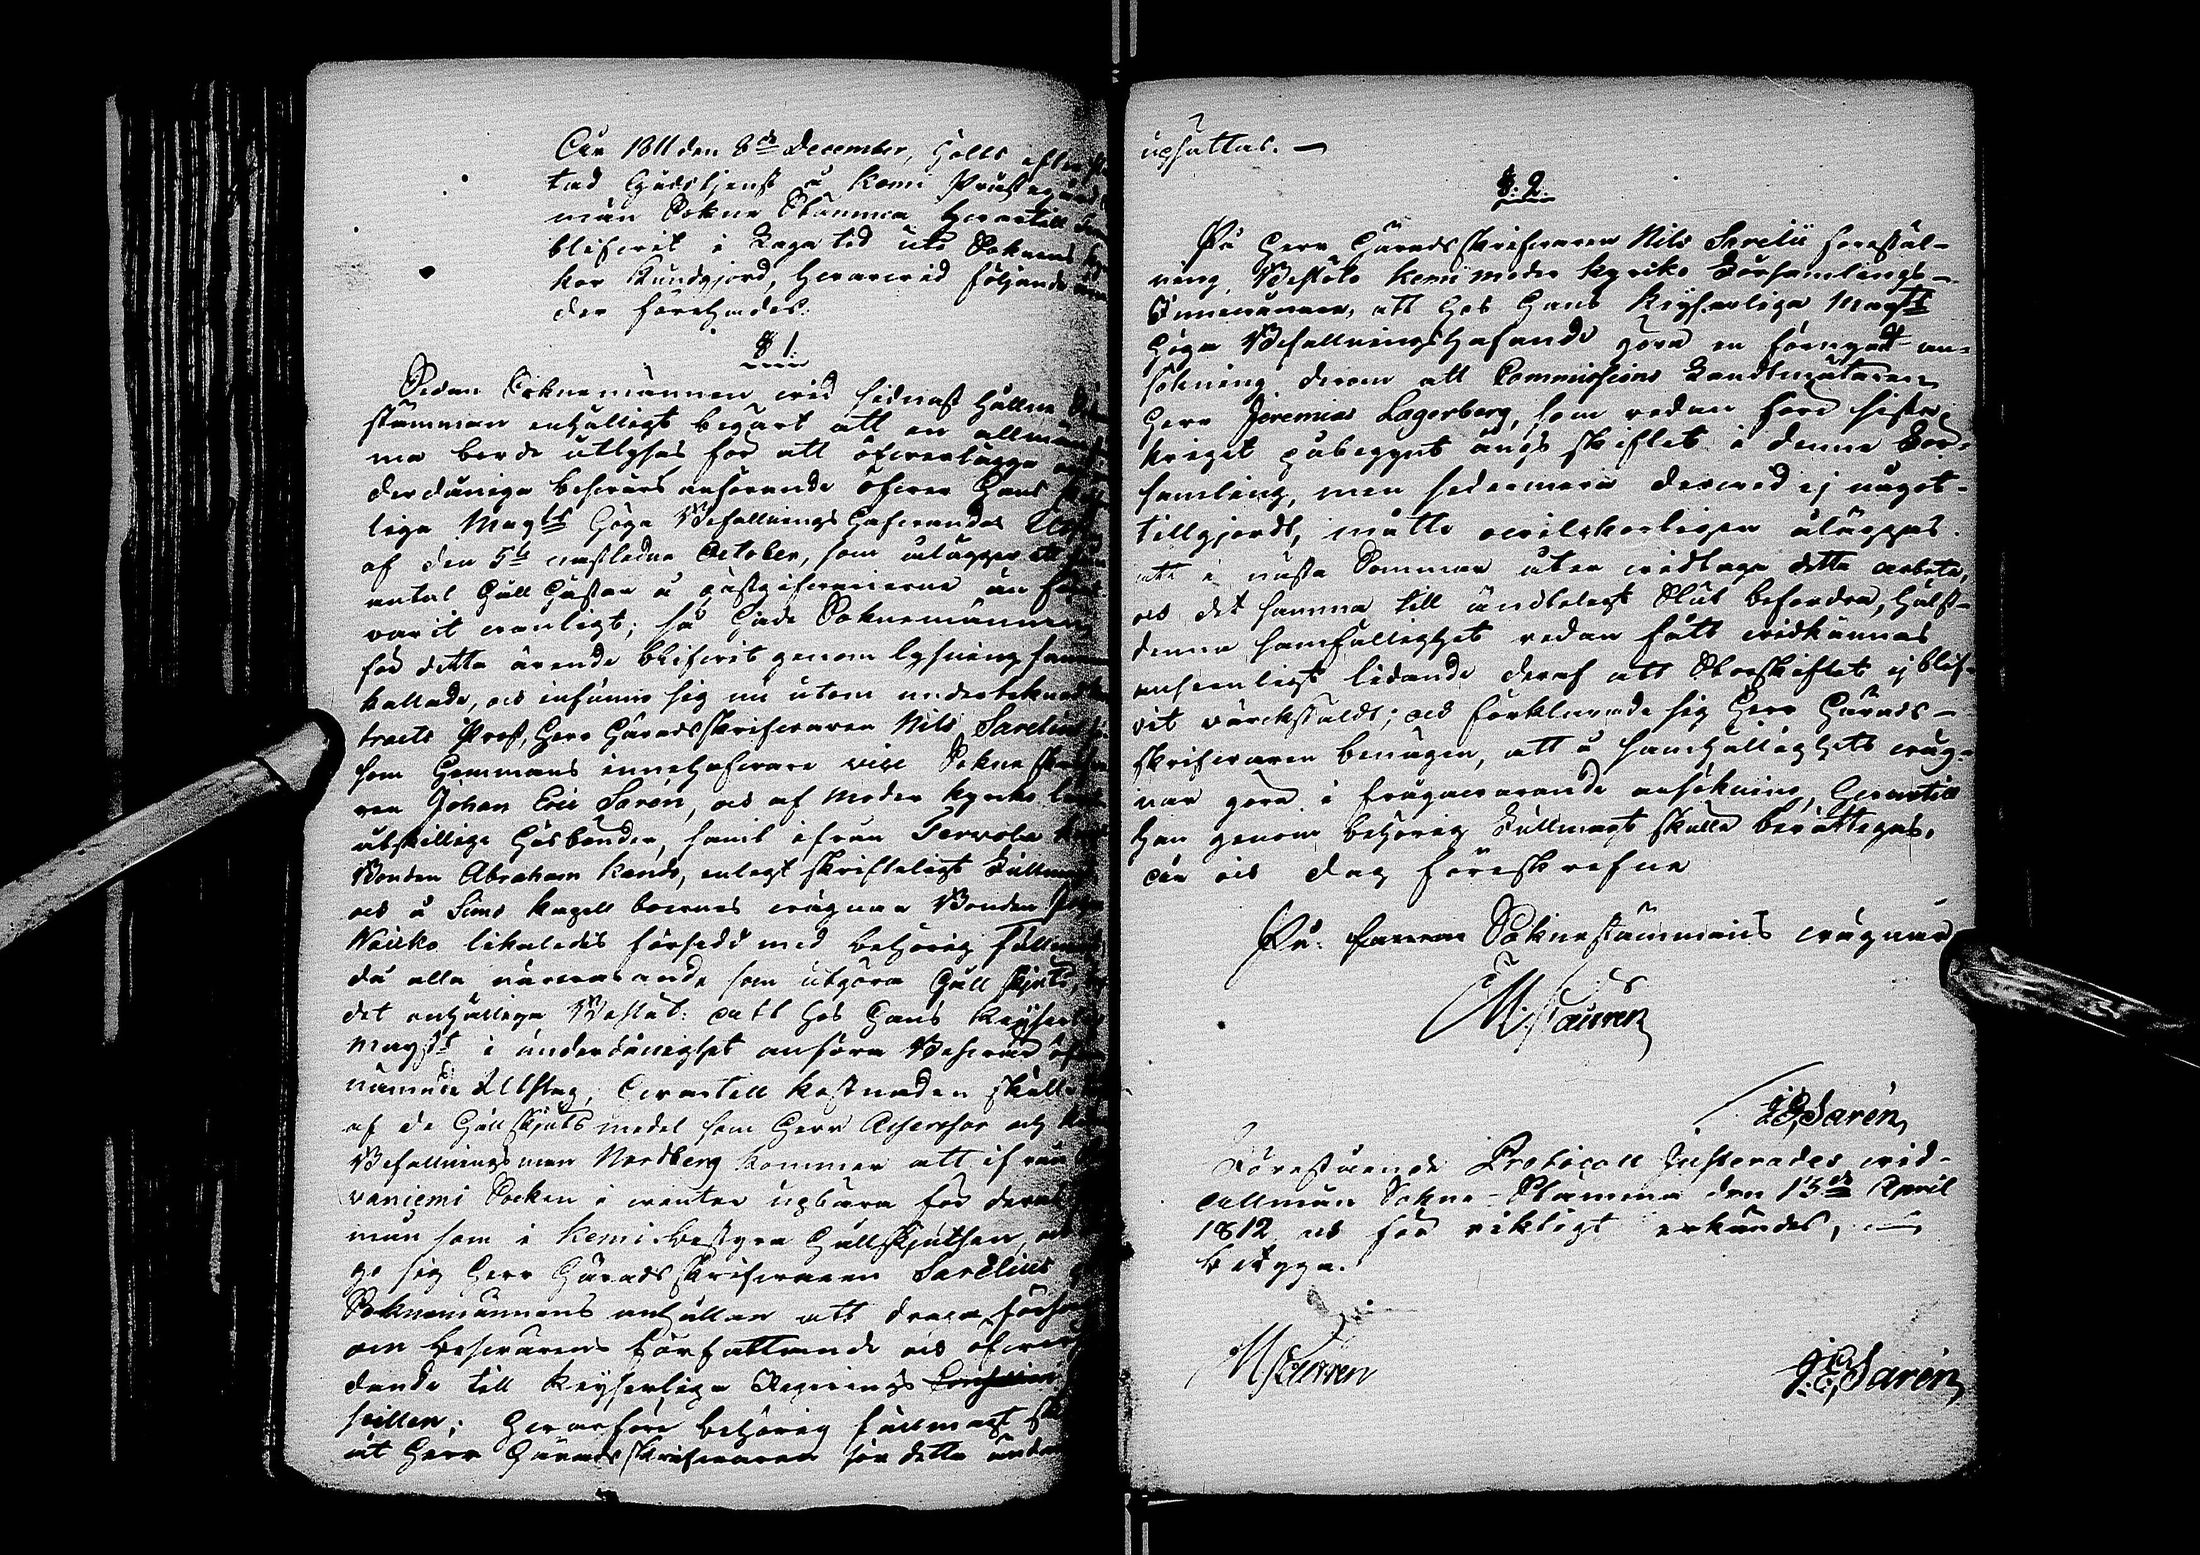 År 1811 den 8de December, hölls efter
tad Gudstjenst å Kemi Prästegård
män Sokne Stämma hvartill
blifvit i Laga tid uti Soknens
kor kundgjord, hvarvid följande
der förehades:
§ 1.
Sedan Soknemännen vid sednast hållne
stämman enhälligt begärt att en allmän
ma borde utlysas för att öfverlägga
derdåniga besvärs anförande öfver Hans
liga Maysts Höga Befallnings hafvandes
af den 5te nästledne October, som ålägger
antal Håll hästar å gästgifverierne än förut
varit vanligt; så hade Soknemännen
för detta ärende blifvit genom lysning samman
kallade, och infunno sig nu utom undertecknad
tracts Prost, Herr Häradsskrifvaren Nils Sarelius
som Hemmans innehafvare vice Sokneskrifva
ren Johan Eric Sarén, och af Moder kyrko
åtskillige Husbönder, samt ifrån Tervola
Bonden Abraham Kando, enligt skrifteligt Fullmagt
och å Simo kapell boernes vägnar Bonden
Waicko likaledes försedd med behörig fullmagt
då alla närvarande som utgöra Hållskjuts,
det enhälliga Beslut: att hos Hans Keyserliga
Mayst i underdånighet anföra Besvär öfver
nämnde Utslag, hvartill kostnaden skulle
af de Hållskjuts medel som Herr Assessor och
Befallningsman Nordberg kommer att ifrån
vaniemi Socken i vinter upbära för deras
män som i Kemi bestyra Hållskjutsen,
ge sig Herr Häradsskrifvaren Sarelius
Soknemännens anhållan att draga försorg
om besvärens författande och öfver
dande till Keyserliga Regerings
seillen; hvarföre behörig fullmagt
åt Herr Häradsskrifvaren för detta ärende
upsattas. —
§. 2.
På Herr Häradsskrifvaren Nils Sarelii föreställ-
ning, Beslöto Kemi moder kyrko Församlings-
Innevånare, att hos Hans Keyserliga Maysts
Höga Befallningshafvande göra en förnyad an-
sökning derom att Commissions Landtmätaren
Herr Jeremias Lagerberg, som redan före sista
kriget påbegynt ängs skiftet i denna För-
samling, men sedermera dervid ej något
tillgjordt, måtte ovilkorligen åläggas
att i nästa Sommar åter vidtaga detta arbete,
och det samma till ändteligt slut befordra, hälst
denna samfällighet redan fått vidkännas
ansenligt lidande deraf att Storskiftet ej blif-
vit värckstäldt; och förklarade sig Herr Härads-
skrifvaren benägen, att å samfällighets väg-
nar göra i frågavarande ansökning, hvartill
han genom behörig Fullmagt skulle berättigas.
År och dag föreskrefne
På Soknestämmans vägnar
JESarén
Förestående Protocoll Justerades vid
allmän Sokne-Stämma den 13de April
1812 och för riktigt erkändes,
betyga.
JESarén